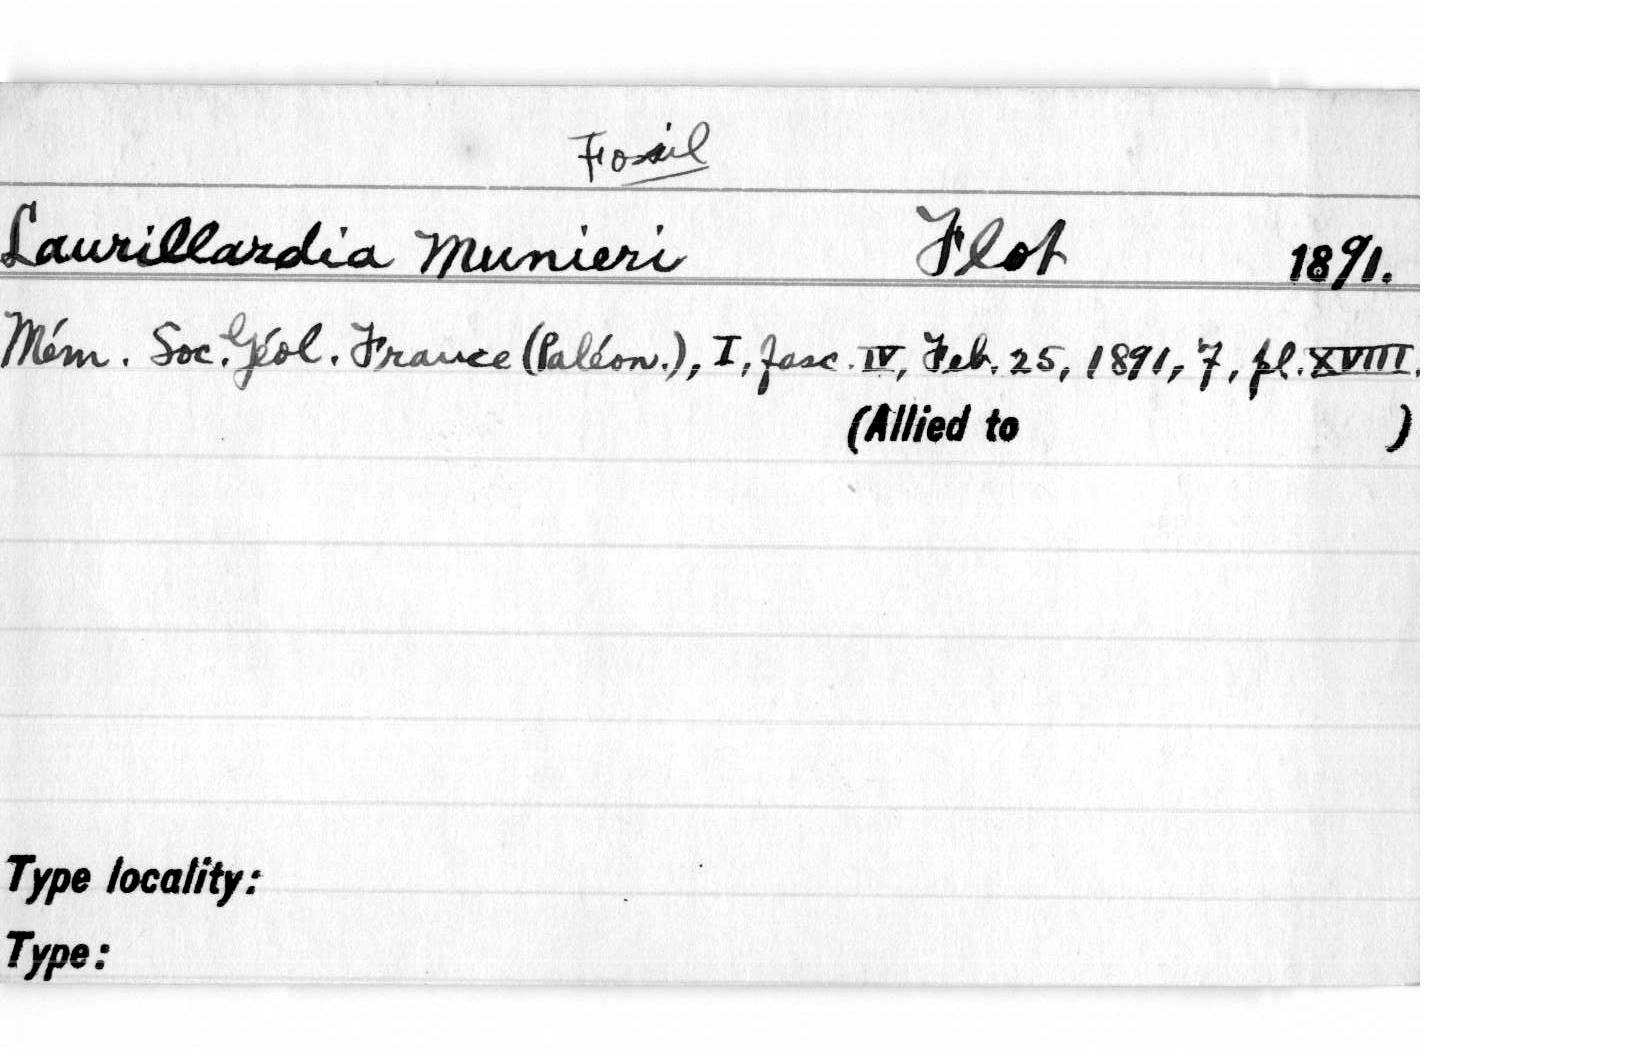 Fossil
Laurillardia Munieri Flot 1891.
Mém. Soc. Géol. France (Paléon.), I, fasc. IV, Feb. 25, 1891, 7, pl. XVIII.
(Allied to )
Type locality:
Type: